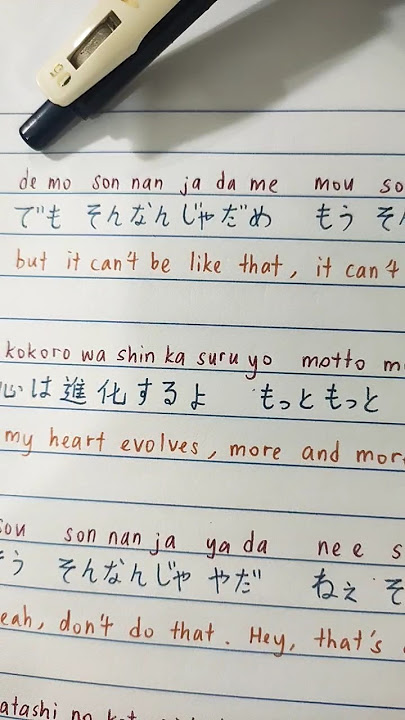 de mo son nan ja da me mou so
でも そんなんじゃだめ もう そ
but it can't be like that, it can't
kokoro wa shin ka suru yo motto m
心は進化するよ もっともっと
my heart evolves, more and mor
sou son nan ja ya da ne e s
そう そんなんじゃ やだ ねぇ そ
eah, don't do that. Hey, that's
atashi no